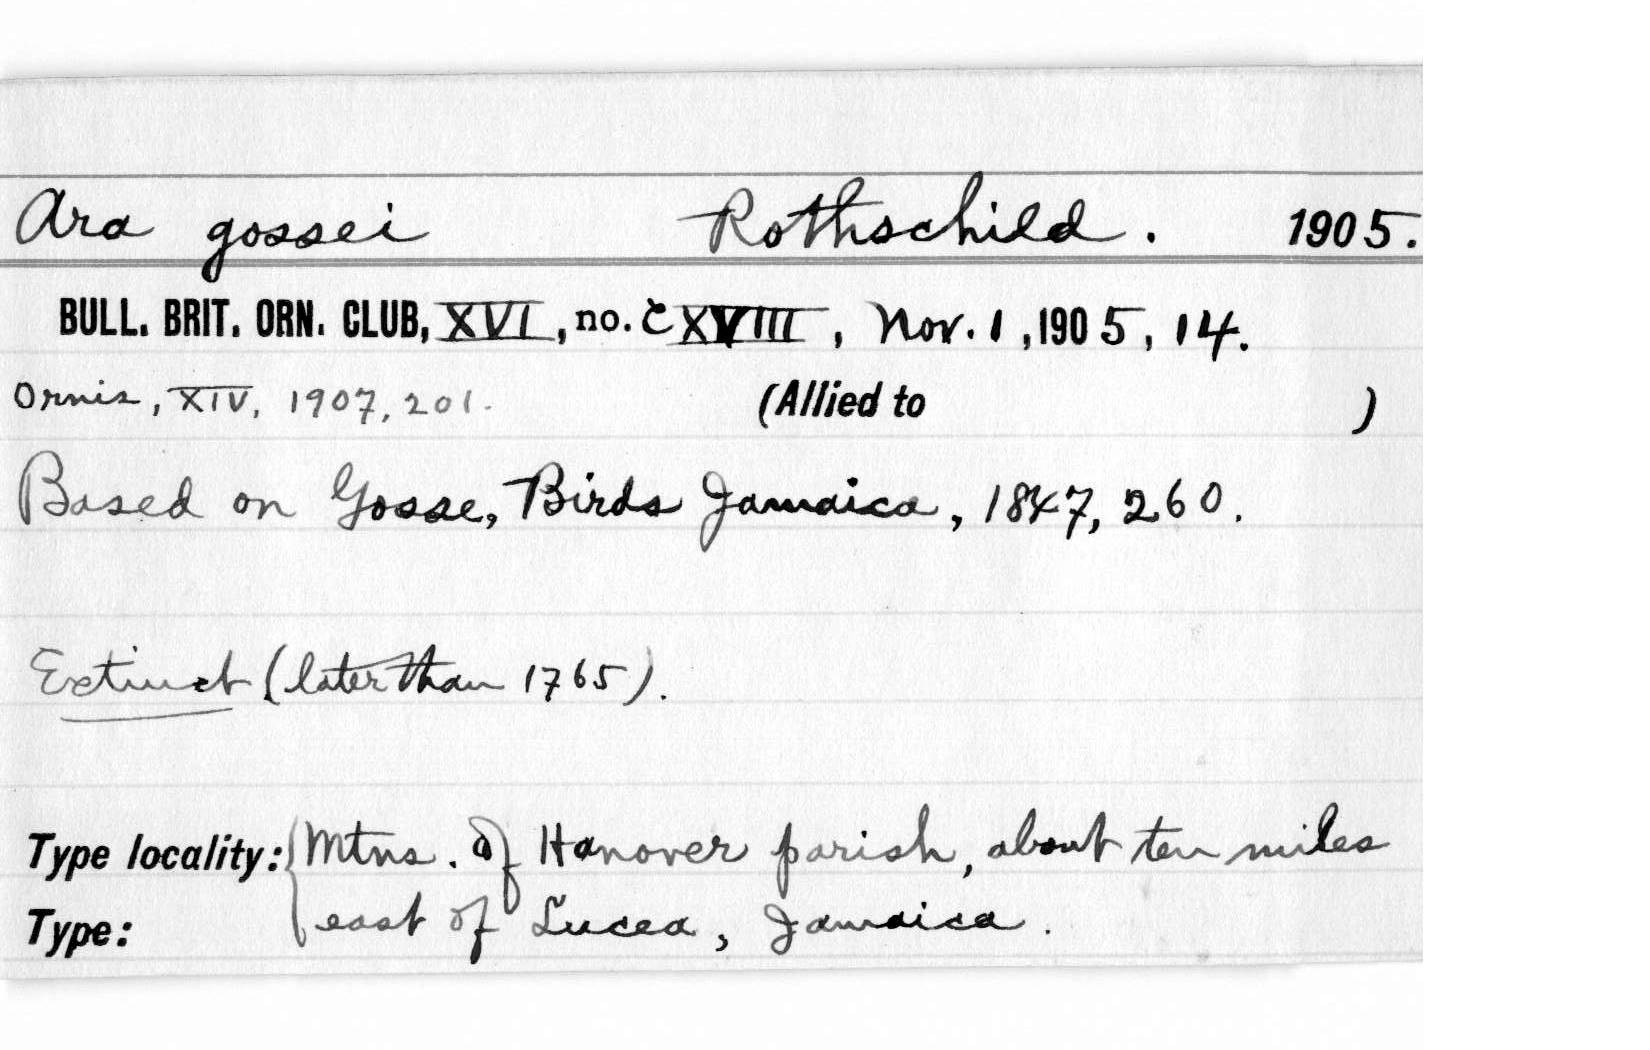 Ara gossei Rothschild. 1905.
BULL. BRIT. ORN. CLUB, XVI, no. CXVIII, Nov. 1, 1905, 14.
Ornis, XIV, 1907, 201. (Allied to )
Based on Gosse, Birds Jamaica, 1847, 260.
Extinct (later than 1765).
Type locality: Mtns. of Hanover parish, about ten miles
Type: east of Lucea, Jamaica.